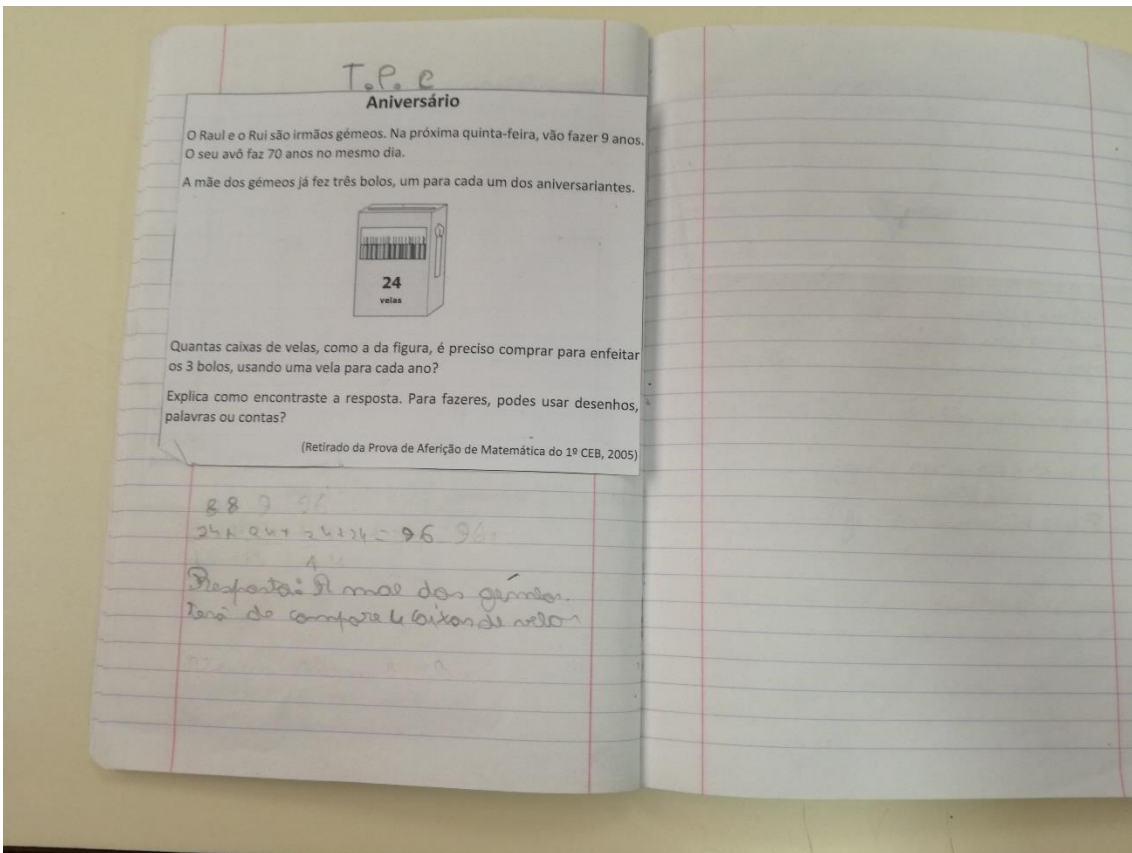 T.P.C
Aniversário
O Raul e o Rui são irmãos gémeos. Na próxima quinta-feira, vão fazer 9 anos.
O seu avô faz 70 anos no mesmo dia.
A mãe dos gémeos já fez três bolos, um para cada um dos aniversariantes.
24
velas
Quantas caixas de velas, como a da figura, é preciso comprar para enfeitar
os 3 bolos, usando uma vela para cada ano?
Explica como encontraste a resposta. Para fazeres, podes usar desenhos,
palavras ou contas?
(Retirado da Prova de Aferição de Matemática do 1º CEB, 2005)
88
24+24+24+24=96
Resposta: A mãe dos gémeos
terá de compare 4 caixas de velas